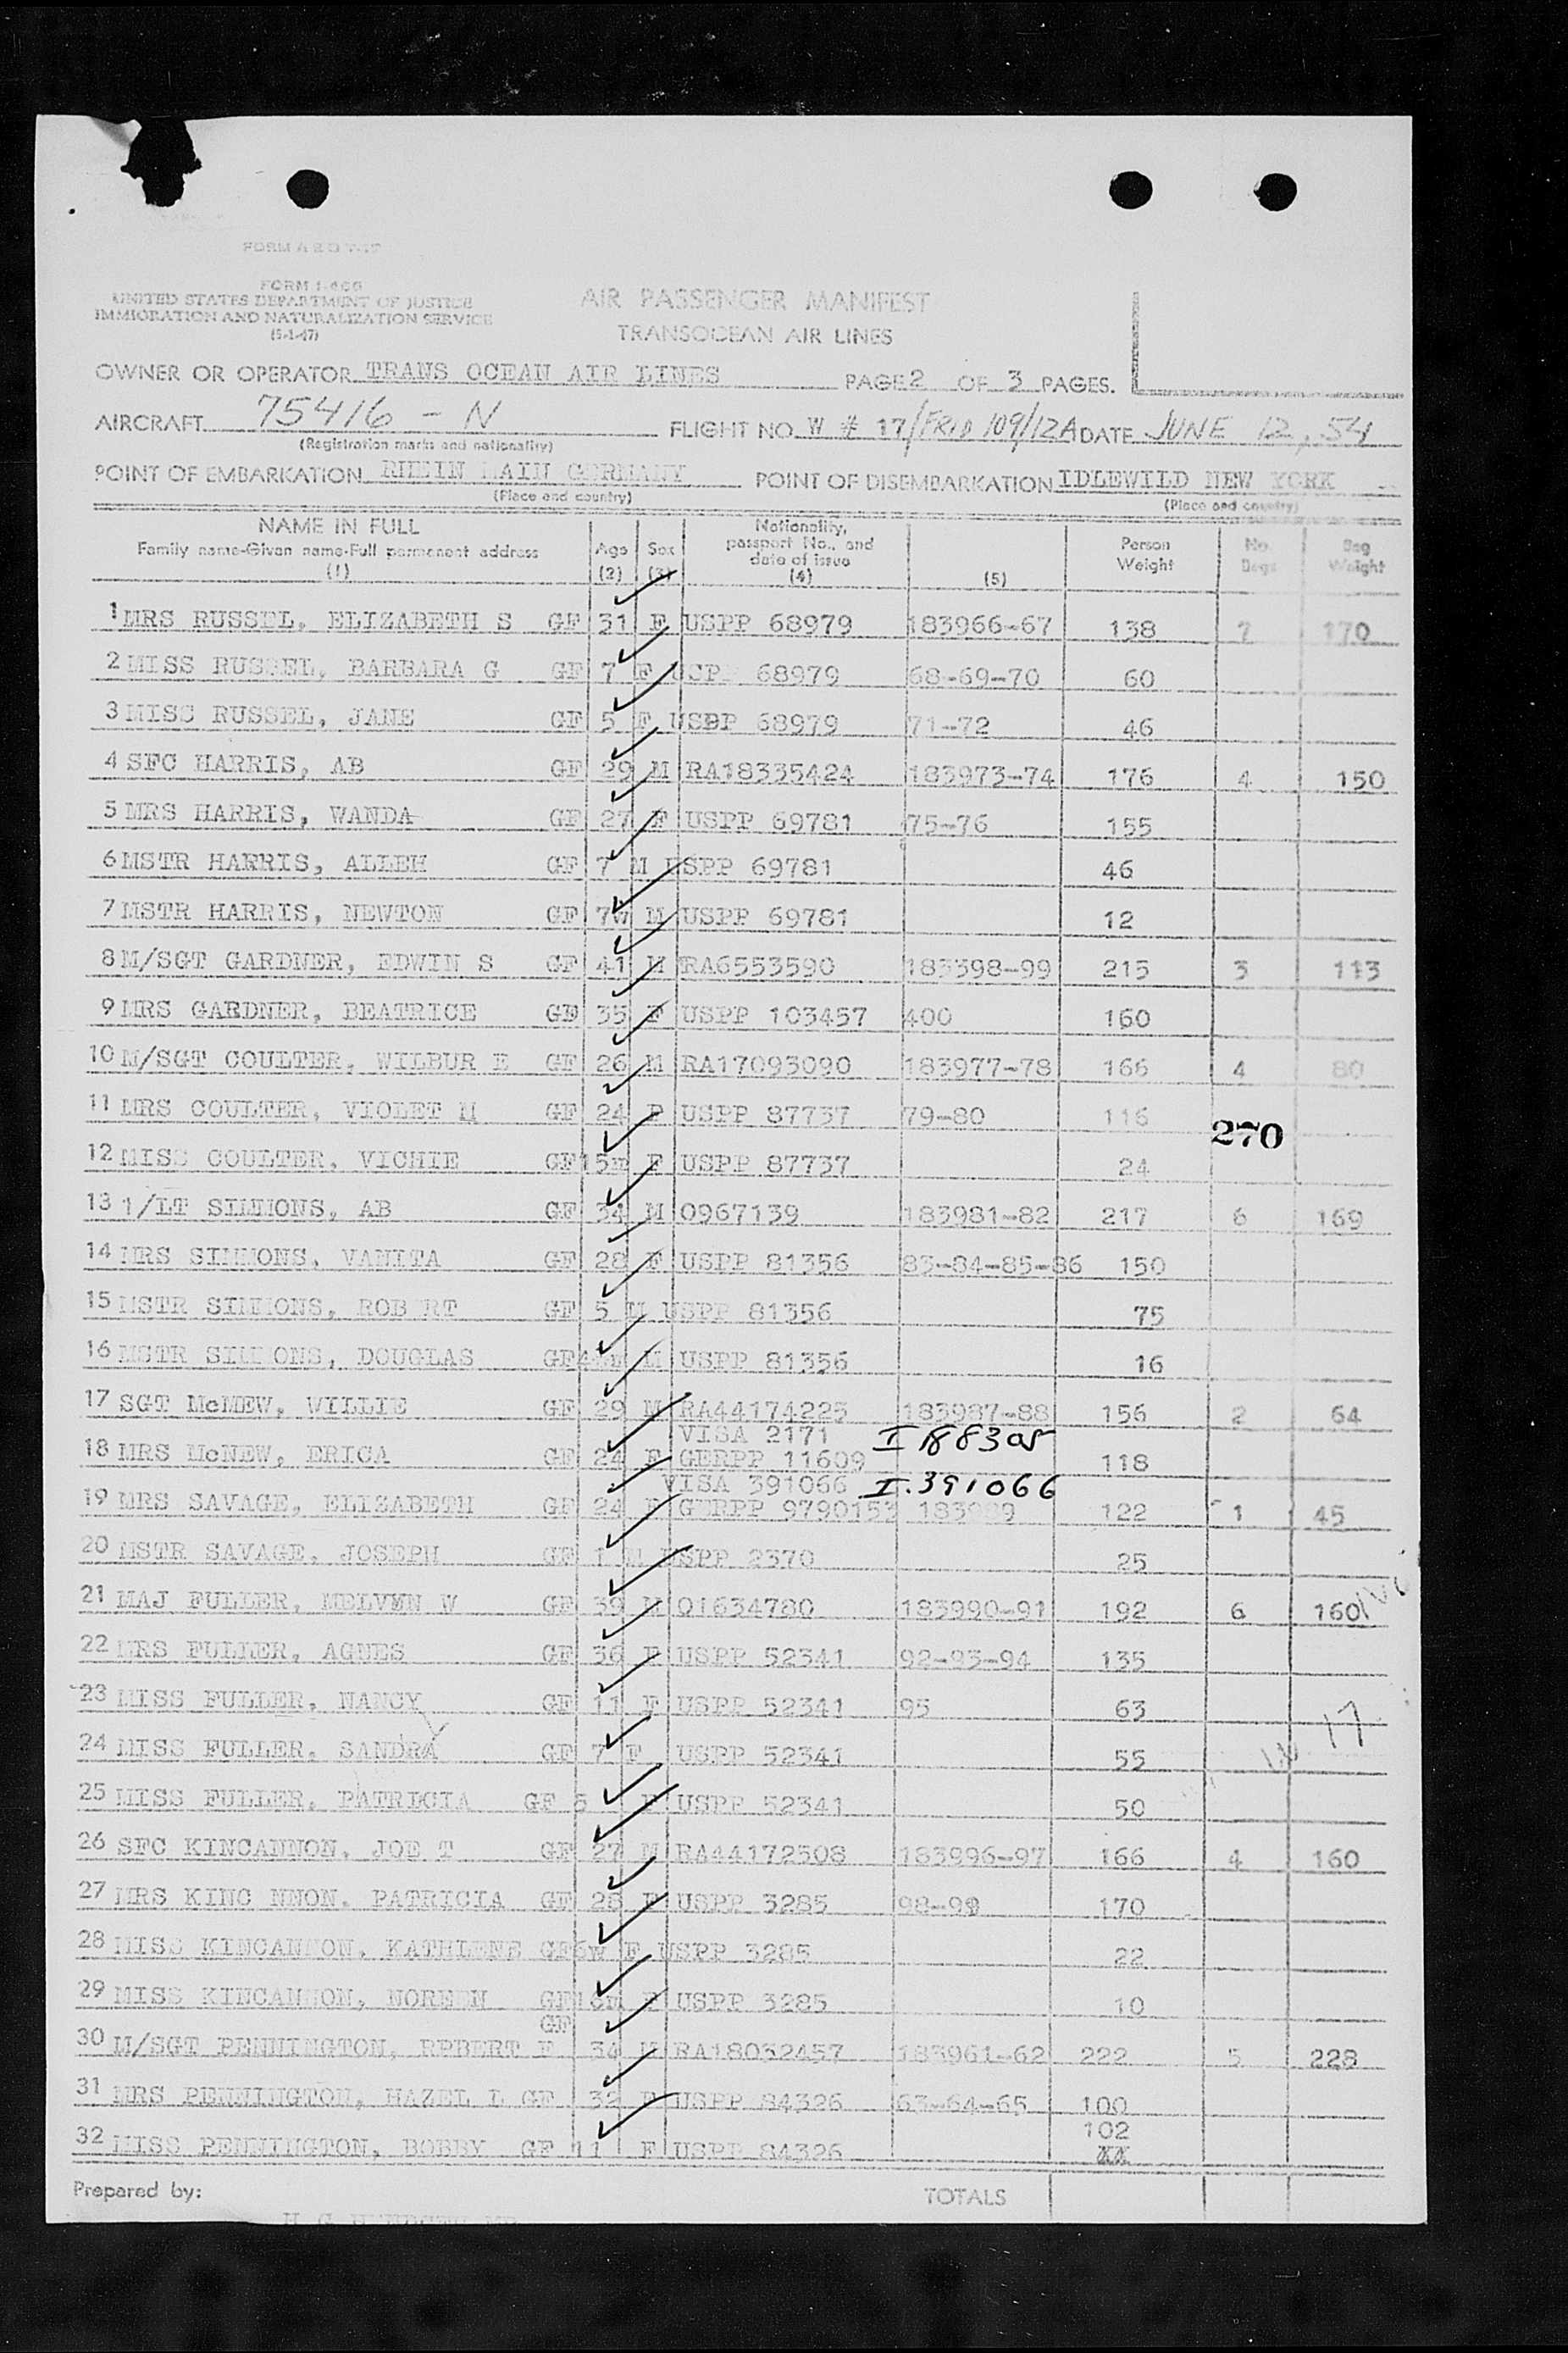 FORM I-466
UNITED STATES DEPARTMENT OF JUSTICE
IMMIGRATION AND NATURALIZATION SERVICE
(5-1-47)
AIR PASSENGER MANIFEST
TRANSOCEAN AIR LINES
OWNER OR OPERATOR TRANS OCEAN AIR LINES PAGE 2 OF 3 PAGES.
AIRCRAFT 75416 - N FLIGHT NO. W # 17/FRID 109/12A DATE JUNE 12, 54
(Registration marks and nationality)
POINT OF EMBARKATION RHEIN MAIN GERMANY POINT OF DISEMBARKATION IDLEWILD NEW YORK
(Place and country) (Place and country)
NAME IN FULL
Family name-Given name-Full permanent address
(1)
Age
(2)
Sex
(3)
Nationality,
passport No., and
date of issue
(4)
(5)
Person
Weight
No.
Bags
Bag
Weight
1 MRS RUSSEL, ELIZABETH S GF 31 F USPP 68979 183966-67 138 7 170
2 MISS RUSSEL, BARBARA G GF 7 F USP 68979 68-69-70 60
3 MISS RUSSEL, JANE GF 5 F USPP 68979 71-72 46
4 SFC HARRIS, AB GF 29 M RA18335424 183973-74 176 4 150
5 MRS HARRIS, WANDA GF 27 F USPP 69781 75-76 155
6 MSTR HARRIS, ALLEH GF 7 M USPP 69781 46
7 MSTR HARRIS, NEWTON GF 7W M USPP 69781 12
8 M/SGT GARDNER, EDWIN S GF 41 M RA6553590 183398-99 215 3 113
9 MRS GARDNER, BEATRICE GF 35 F USPP 103457 400 160
10 M/SGT COULTER, WILBUR E GF 26 M RA17093090 183977-78 166 4 80
11 MRS COULTER, VIOLET M GF 24 F USPP 87737 79-80 116
270
12 MISS COULTER, VICHIE GF 15m F USPP 87737 24
13 1/LT SIMMONS, AB GF 34 M 0967139 183981-82 217 6 169
14 MRS SIMMONS, VANITA GF 28 F USPP 81356 83-84-85-86 150
15 MSTR SIMMONS, ROB RT GF 5 M USPP 81356 75
16 MSTR SIMMONS, DOUGLAS GF M USPP 81356 16
17 SGT McMEW, WILLIE GF 29 M RA44174225 183987-88 156 2 64
VISA 2171 I 188305
18 MRS McNEW, ERICA GF 24 F GERPP 11609 118
VISA 391066 I.391066
19 MRS SAVAGE, ELIZABETH GF 24 F GERPP 9790153 183989 122 1 45
20 MSTR SAVAGE, JOSEPH GF 1 M USPP 2370 25
21 MAJ FULLER, MELVEN W GF 39 M 01634780 183990-91 192 6 160
22 MRS FULLER, AGNES GF 36 F USPP 52341 92-93-94 135
23 MISS FULLER, NANCY GF 11 F USPP 52341 95 63
17
24 MISS FULLER, SANDRA GF 7 F USPP 52341 55
25 MISS FULLER, PATRICIA GF 5 F USPP 52341 50
26 SFC KINCANNON, JOE T GF 27 M RA44172508 183996-97 166 4 160
27 MRS KINC NNON, PATRICIA GF 28 F USPP 3285 98-99 170
28 MISS KINCANNON, KATHLENE GF 6W F USPP 3285 22
29 MISS KINCANNON, NOREEN GF 18m F USPP 3285 10
GF
30 M/SGT PENNINGTON, RPBERT F 34 M RA18032457 183961-62 222 5 228
31 MRS PENNINGTON, HAZEL L GF 32 F USPP 84326 63-64-65 100
102
32 MISS PENNINGTON, BOBBY GF 11 F USPP 84326 XX
Prepared by: TOTALS